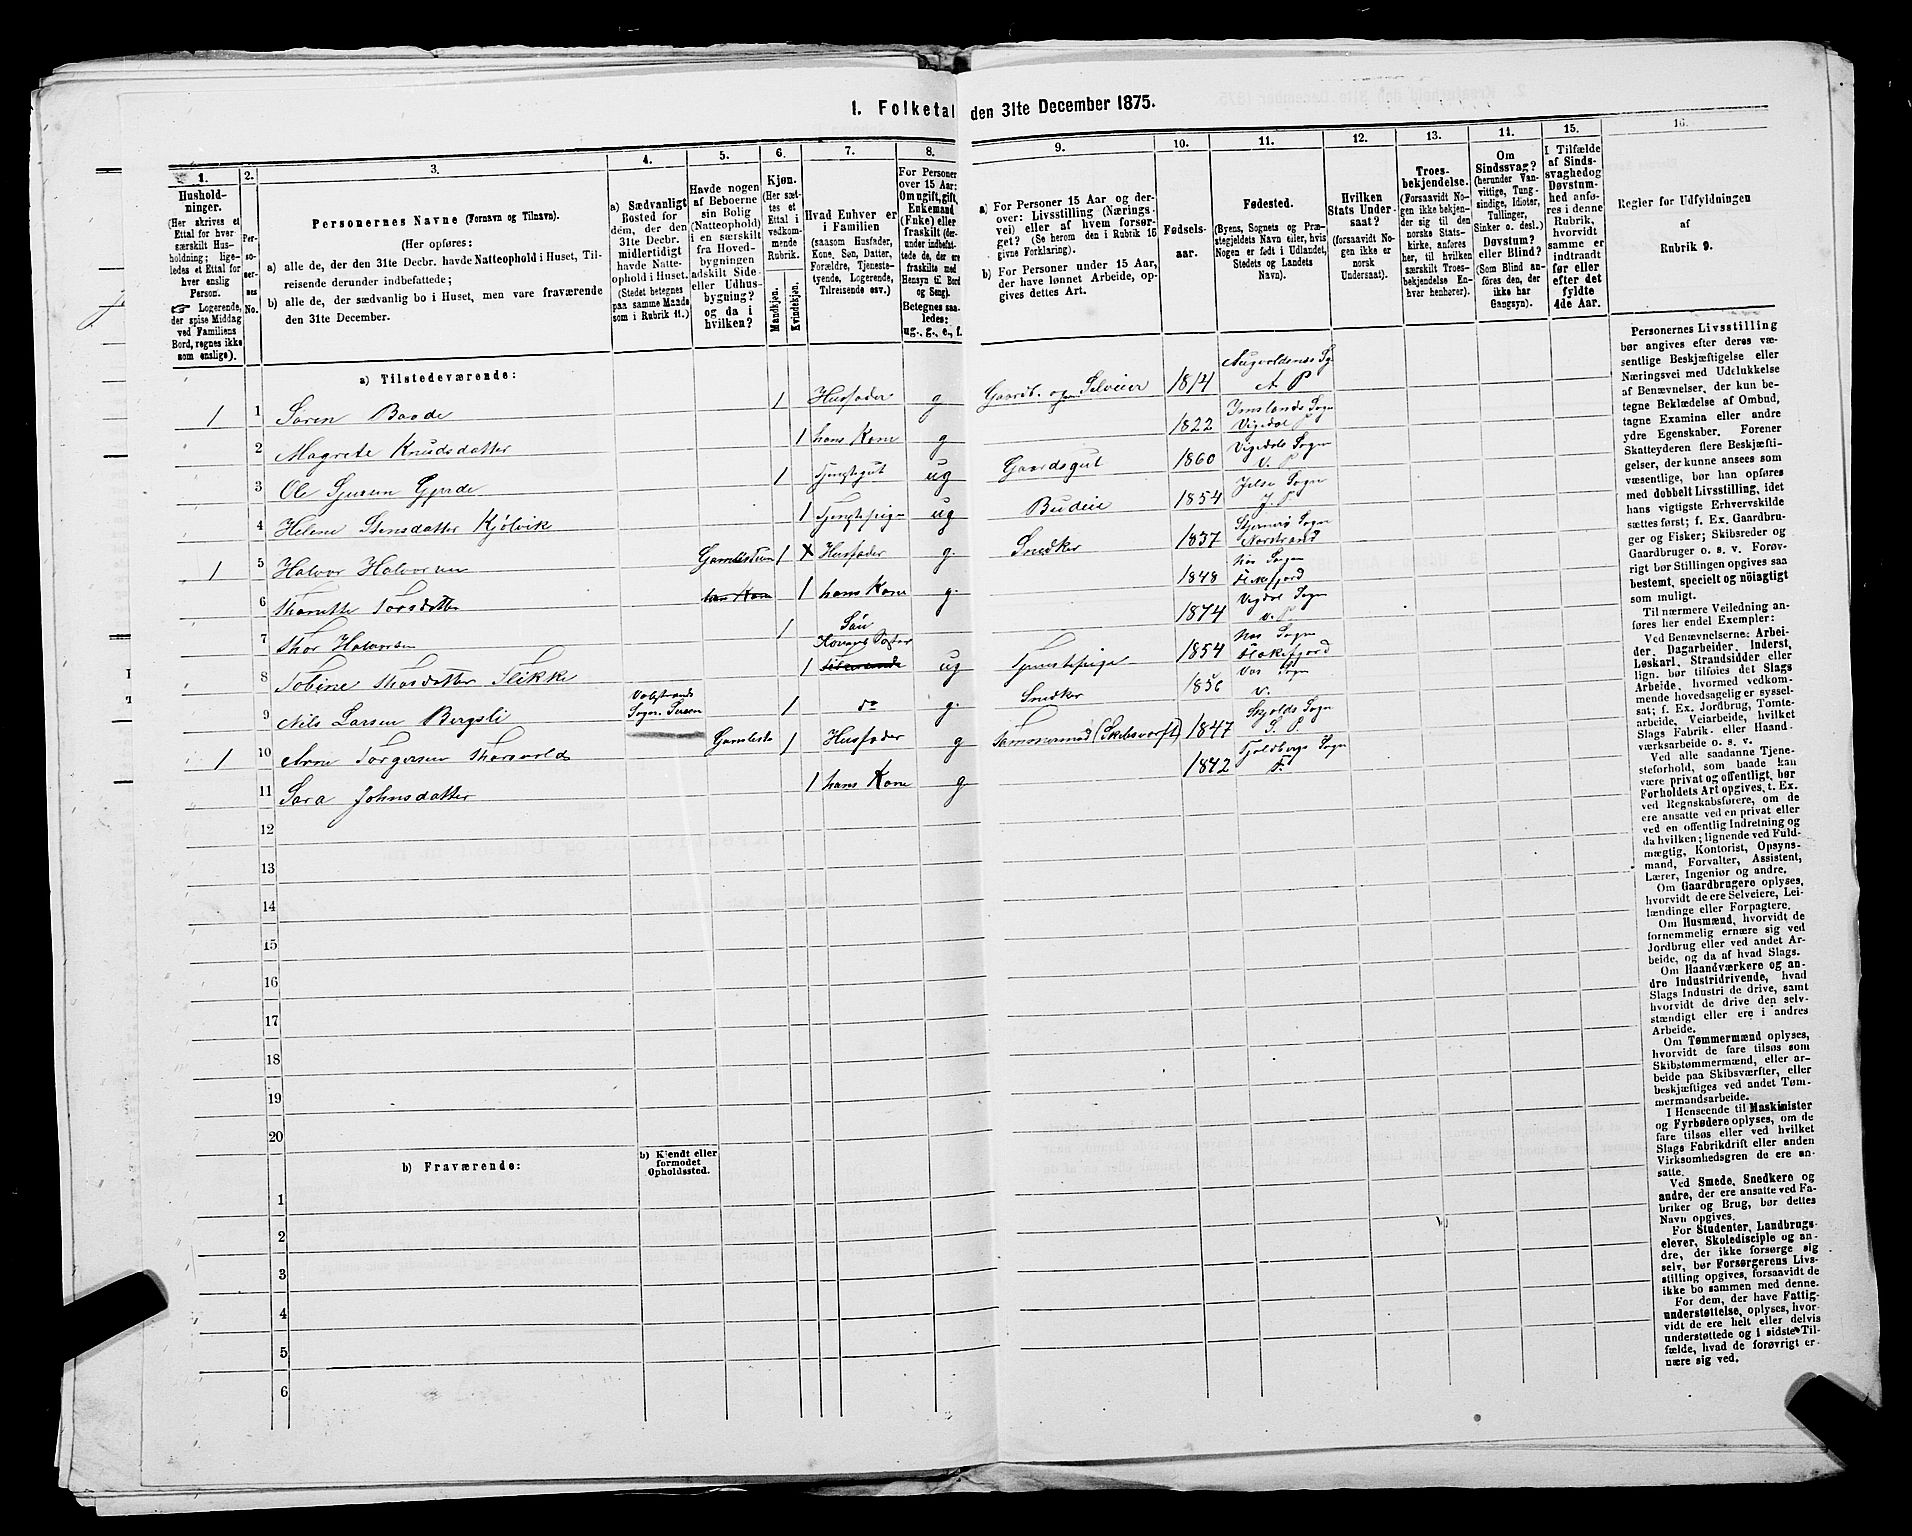 1. Folketal den 31te December 1875.
1. 2. 3. 4. 5. 6. 7. 8. 9. 10. 11. 12. 13. 14. 15. 16.
Hushold-
ninger.
(Her skrives et
Ettal for hver
særskilt Hus-
holdning; lige-
ledes et Ettal for
hver enslig
Person.
☞ Logerende,
der spise Middag
ved Familiens
Bord, regnes ikke
som enslige).
Per-
so-
ner-
nes
No.
Personernes Navne (Fornavn og Tilnavn).
(Her opføres:
a) alle de, der den 31te Decbr. havde Natteophold i Huset, Til-
reisende derunder indbefattede;
b) alle de, der sædvanlig bo i Huset, men vare fraværende
den 31te December.
a) Sædvanligt
Bosted for
dem, der den
31te Decbr.
midlertidigt
havde Natte-
ophold i Huset.
(Stedet betegnes
paa samme Maade
som i Rubrik 11.)
Havde nogen
af Beboerne
sin Bolig
(Natteophold)
i en særskilt
fra Hoved-
bygningen
adskilt Side-
eller Udhus-
bygning?
og da i
hvilken?
Kjøn.
(Her sæt-
tes et
Ettal i
vedkom-
mende
Rubrik.
Mandkjøn.
Kvindekjøn.
Hvad Enhver er
i Familien
(saasom Husfader,
Kone, Søn, Datter,
Forældre, Tjeneste-
tyende, Logerende,
Tilreisende osv.)
For Personer
over 15 Aar:
Om ugift, gift,
Enkemand
(Enke) eller
fraskilt (der-
under indbefat-
tede de, der ere
fraskilte med
Hensyn til Bord
og Seng).
Betegnes saa-
ledes:
ug., g., e., f.
a) For Personer 15 Aar og der-
over: Livsstilling (Nærings-
vei) eller af hvem forsør-
get? (Se herom den i Rubrik 16
givne Forklaring).
b) For Personer under 15 Aar,
der have lønnet Arbeide, op-
gives dettes Art.
Fødsels-
aar.
Fødested.
(Byens, Sognets og Præ-
stegjeldets Navn eller, hvis
Nogen er født i Udlandet,
Stedets og Landets
Navn).
Hvilken
Stats Under-
saat?
(forsaavidt No-
gen ikke er
norsk
Undersaat).
Troes-
bekjendelse.
(Forsaavidt No-
gen ikke bekjen-
der sig til den
norske Stats-
kirke, anføres
her, til hvilken
særskilt Troes-
bekjendelse En-
hver henhører).
Om
Sindssvag?
(herunder Van-
vittige, Tung-
sindige, Idioter,
Tullinger,
Sinker o. desl.)
Døvstum?
eller Blind?
(Som Blind an-
føres den, der
ikke har
Gangsyn).
I Tilfælde
af Sinds-
svaghed og
Døvstum-
hed anfø-
res i denne
Rubrik,
hvorvidt
samme er
indtraadt
før eller
efter det
fyldte
4de Aar.
Regler for Udfyldningen
af
Rubrik 9.
a) Tilstedeværende:
1 1 Søren Baade 1 Husfader g Gaardb. og Selveier 1814 Augvoldsnes Sg A P
2 Magrete Knudsdatter 1 hans Kone g 1822 Imslands Sogn Vigedal P
3 Ole Gjerde 1 Tjenstegut ug Gaardsgut 1860 Vigedals Sogn V. P
4 Helene Stensdatter Kjølvik 1 Tjenstepige ug Budeie 1854 Jelse Sogn J. P
1 5 Halvor Halvorsen 1 Husfader g. Snedker 1837 Sogn
6 Torsdatter hans Kone 1 hans Kone g. 1848 Sogn
7 Thor Halvorsen 1 Søn 1874 Vigdal Sogn V. P
8 Tobine Thorsdatter 1 Konens Søster Tilreisende ug Tjenstepige 1854 Sogn
9 Nils Larsen Bergsli Sogn 1 do g. Snedker 1836 Sogn V.
1 10 Arne Torgersen 1 Husfader g Tømmermand (Skibsværft) 1847 Skjolds Sogn S. P.
11 Sara Johnsdatter 1 hans Kone g 1842 Sogn
12
13
14
15
16
17
18
19
20
b) Fraværende:
b) Kjendt eller
formodet
Opholdssted.
1
2
3
4
5
6
Personernes Livsstilling
bør angives efter deres væ-
sentlige Beskjæftigelse eller
Næringsvei med Udelukkelse
af Benævnelser, der kun be-
tegne Beklædelse af Ombud,
tagne Examina eller andre
ydre Egenskaber. Forener
Skatteyderen flere Beskjæfti-
gelser, der kunne ansees som
væsentlige, bør han opføres
med dobbelt Livsstilling, idet
hans vigtigste Erhvervskilde
sættes først; f. Ex. Gaardbru-
ger og Fisker; Skibsreder og
Gaardbruger o. s. v. Forøv-
rigt bør Stillingen opgives saa
bestemt, specielt og nöiagtigt
som muligt.
Til nærmere Veiledning an-
føres her endel Exempler:
Ved Benævnelserne: Arbei-
der, Dagarbeider, Inderst,
Løskarl, Strandsidder eller
lign. bør tilføies det Slags
Arbeide, hvormed vedkom-
mende hovedsagelig er syssel-
sat; f. Ex. Jordbrug, Tomte-
arbeide, Veiarbeide, hvilket
Slags Fabrik- eller Haand-
værksarbeide o. s. v.
Ved alle saadanne Tjene-
steforhold, som baade kan
være privat og offentligt, bør
Forholdets Art opgives, t. Ex.
ved Regnskabsførere, om de
ere ansatte ved en privat eller
ved en offentlig Indretning og
da hvilken; lignende ved Fuld-
mægtig, Kontorist, Opsyns-
mand, Forvalter, Assistent,
Lærer, Ingeniør og andre.
Om Gaardbrugere oplyses,
hvorvidt de ere Selveiere, Lei-
lændinge eller Forpagtere.
Om Husmænd, hvorvidt de
fornemmelig ernære sig ved
Jordbrug eller ved andet Ar-
beide, og da af hvad Slags.
Om Haandværkere og an-
dre Industridrivende, hvad
Slags Industri de drive, samt
hvorvidt de drive den selv-
stændigt eller ere i andres
Arbeide.
Om Tømmermænd oplyses,
hvorvidt de fare tilsøs som
Skibstømmermænd, eller ar-
beide paa Skibsværfter, eller
beskjæftiges ved andet Tøm-
mermandsarbeide.
I Henseende til Maskinister
og Fyrbødere oplyses, om de
fare tilsøs eller ved hvilket
Slags Fabrikdrift eller anden
Virksomhedsgren de ere an-
satte.
Ved Smede, Snedkere og
andre, der ere ansatte ved Fa-
briker og Brug, bør dettes
Navn opgives.
For Studenter, Landbrugs-
elever, Skoledisciple og an-
dre, der ikke forsørge sig
selv, bør Forsørgerens Livs-
stilling opgives, forsaavidt de
ikke bo sammen med denne.
For dem, der have Fattig-
understøttelse, oplyses, hvor-
vidt de ere helt eller delvis
understøttede og i sidste Til-
fælde, hvad de forøvrigt er-
nære sig ved.